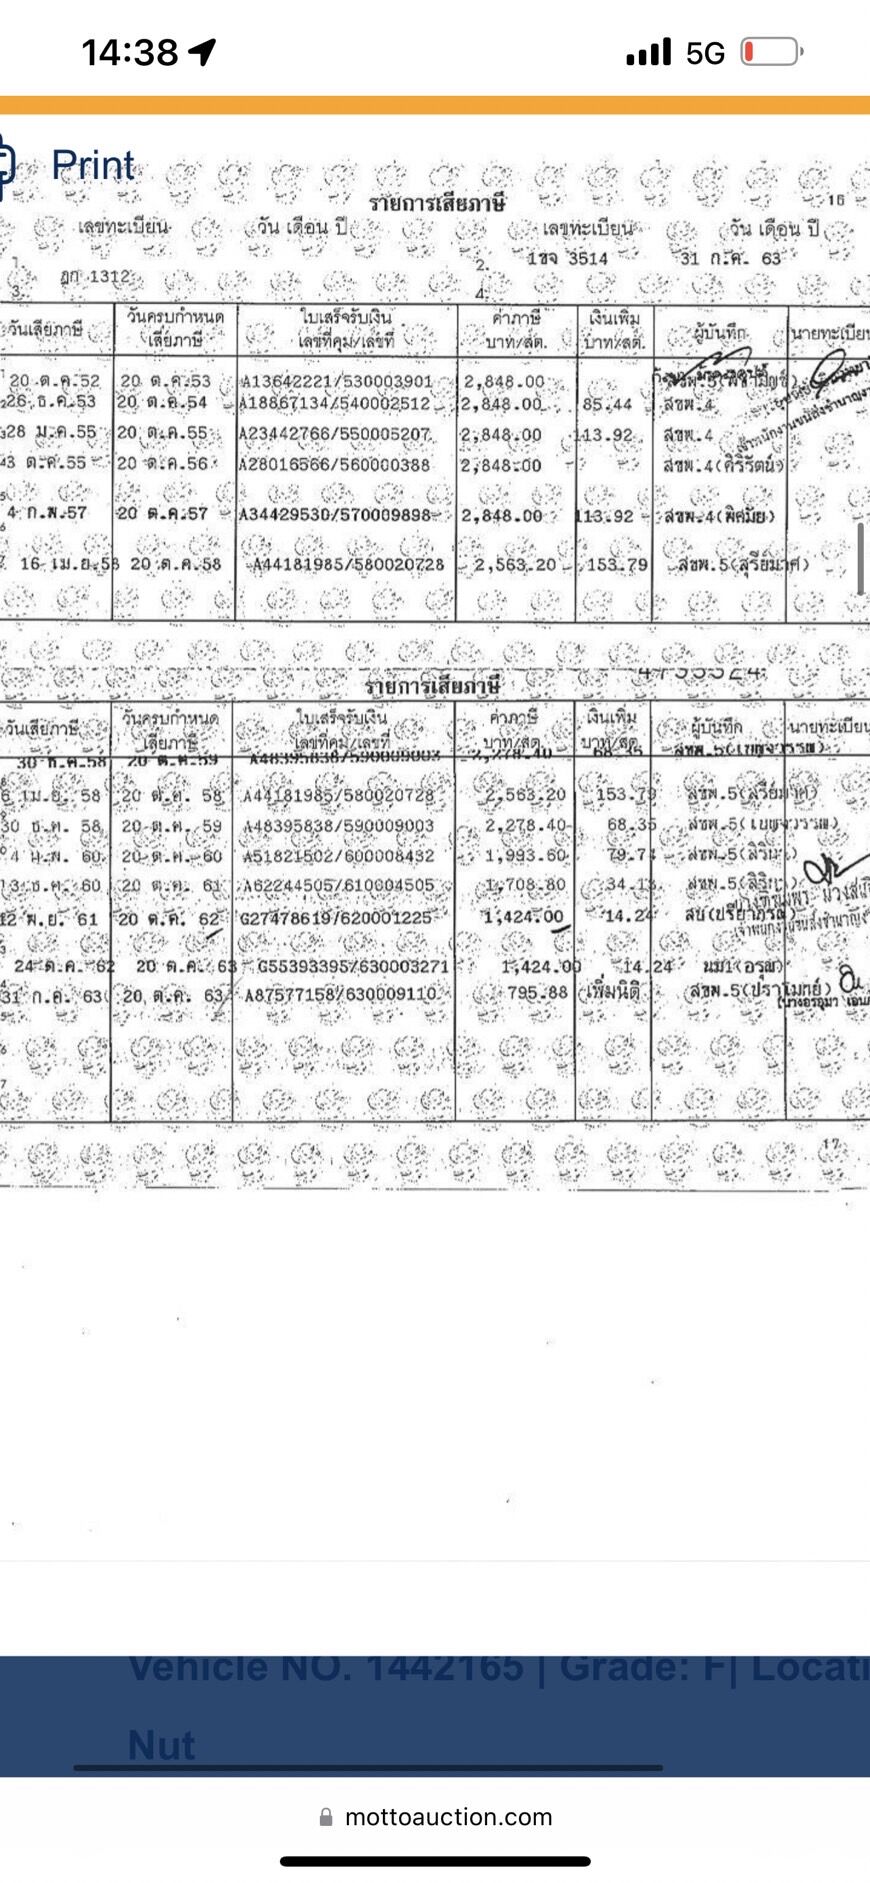 14:38 5G
Print
รายการเสียภาษี 16
เลขทะเบียน วัน เดือน ปี เลขทะเบียน วัน เดือน ปี
1. ฎก 1312 2. 1ขจ 3514 31 ก.ค. 63
3. 4.
วันเสียภาษี วันครบกำหนดเสียภาษี ใบเสร็จรับเงิน เลขที่คุม/เลขที่ ค่าภาษี บาท/สต. เงินเพิ่ม บาท/สต. ผู้บันทึก นายทะเบียน
20 ต.ค.52 20 ต.ค.53 A13642221/530003901 2,848.00
2 26 ธ.ค.53 20 ต.ค.54 A18867134/540002512 2,848.00 85.44 สขพ.4
3 28 ม.ค.55 20 ต.ค.55 A23442766/550005207 2,848.00 113.92 สขพ.4
4 3 ต.ค.55 20 ต.ค.56 A28016566/560000388 2,848.00 สขพ.4(ศิริรัตน์)
5
4 ก.พ.57 20 ต.ค.57 A34429530/570009898 2,848.00 113.92 สขพ.4(พิศมัย)
6
7 16 เม.ย.58 20 ต.ค.58 A44181985/580020728 2,563.20 153.79 สขพ.5(สุรีย์มาศ)
รายการเสียภาษี
วันเสียภาษี วันครบกำหนดเสียภาษี ใบเสร็จรับเงิน เลขที่คุม/เลขที่ ค่าภาษี บาท/สต. เงินเพิ่ม บาท/สต. ผู้บันทึก นายทะเบียน
30 ธ.ค.58 20 ต.ค.59 A48395838/590009003 2,278.40 68.35 สขพ.5(เบญจวรรณ)
6 เม.ย. 58 20 ต.ค. 58 A44181985/580020728 2,563.20 153.79 สขพ.5(สุรีย์มาศ)
30 ธ.ค. 58 20 ต.ค. 59 A48395838/590009003 2,278.40 68.35 สขพ.5(เบญจวรรณ)
4 ม.พ. 60 20 ต.ค. 60 A51821502/600008432 1,993.60 79.7
3 ธ.ค. 60 20 ต.ค. 61 A62244505/610004505 1,708.80 34.1
12 พ.ย. 61 20 ต.ค. 62 G27478619/620001225 1,424.00 14.24
3
24 ต.ค. 62 20 ต.ค. 63 G55393395/630003271 1,424.00 14.24 นม1(อรุณ)
31 ก.ค. 63 20 ต.ค. 63 A87577158/630009110 795.88 เพิ่มนิติ สขพ.5(ปราโมทย์)
5
6
7
17
Vehicle NO. 1442165 | Grade: F| Locati
Nut
mottoauction.com